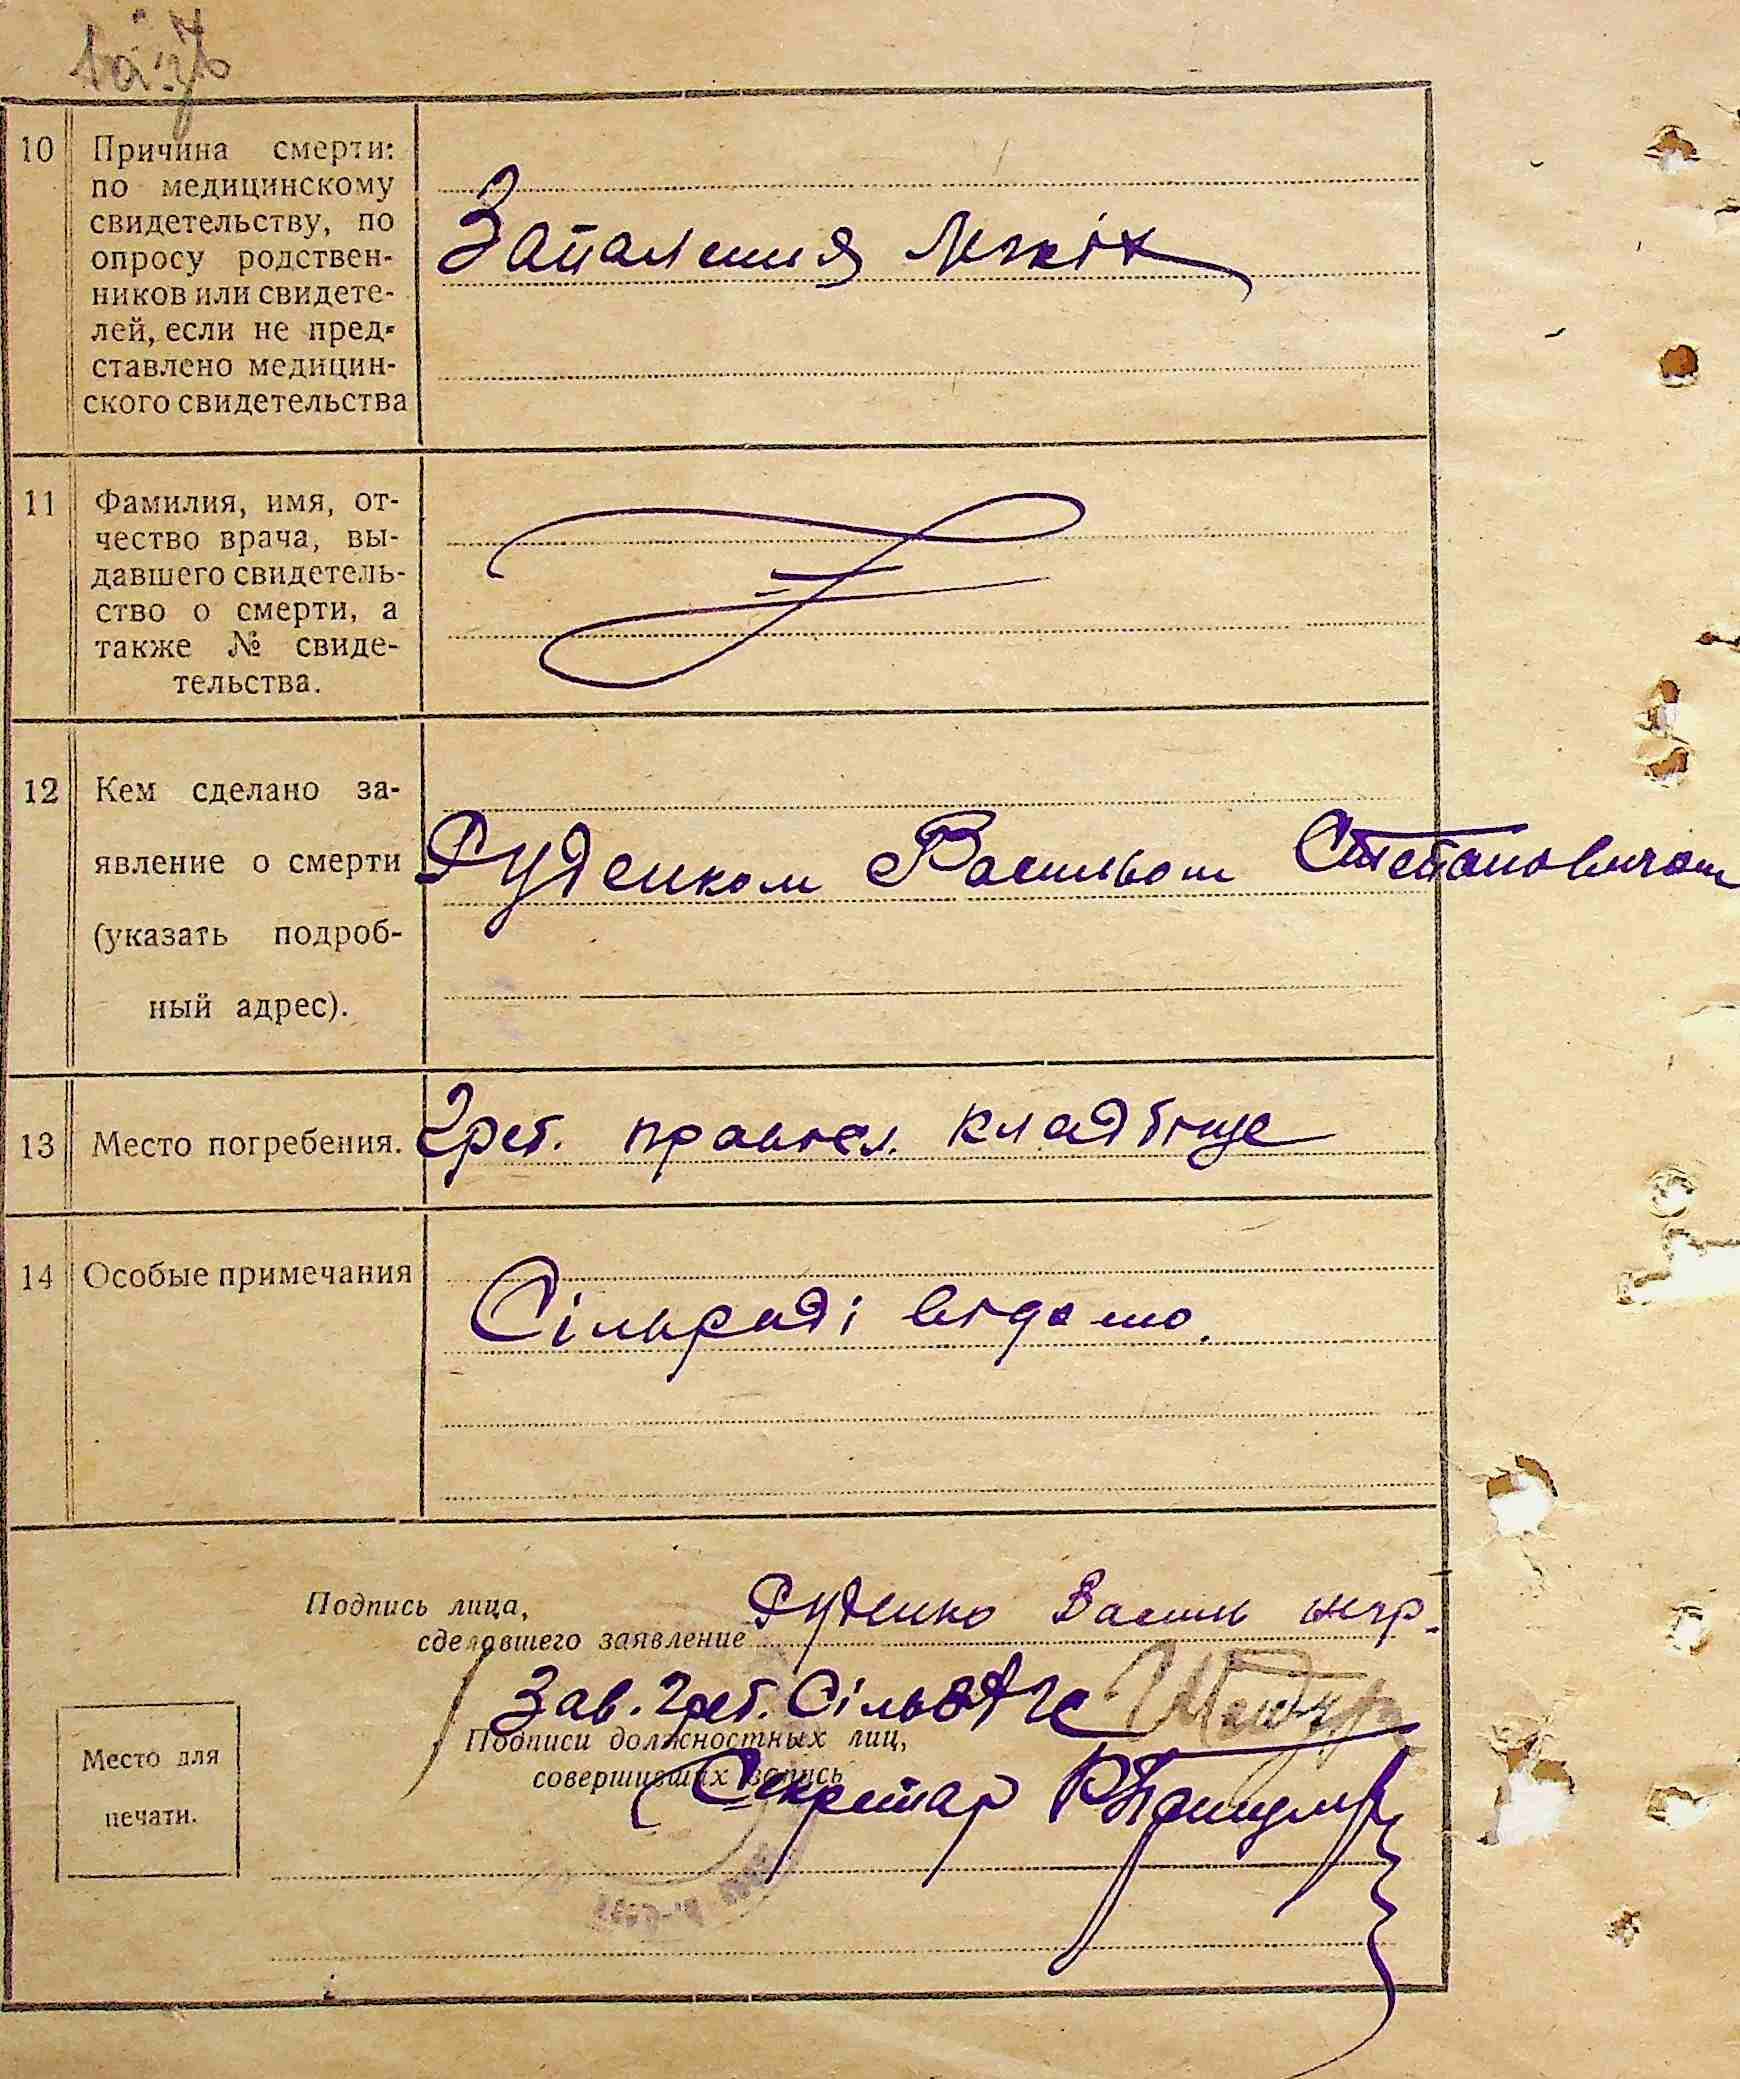 10 Причина смерти:
по медицинскому
свидетельству, по
опросу родствен-
ников или свидете-
лей, если не пред-
ставлено медицин-
ского свидетельства
Запалення легкіх
11 Фамилия, имя, от-
чество врача, вы-
давшего свидетель-
ство о смерти, а
также № свиде-
тельства.
12 Кем сделано за-
явление о смерти
(указать подроб-
ный адрес).
Руденком Васильом Степановичом
13 Место погребения. Греб. правосл. кладбище
14 Особые примечания
Сільраді видано.
Подпись лица,
сделавшего заявление Руденко Василь
Зав. Греб. Сіль
Подписи должностных лиц,
совершивших запись
Секретар
Место для
печати.